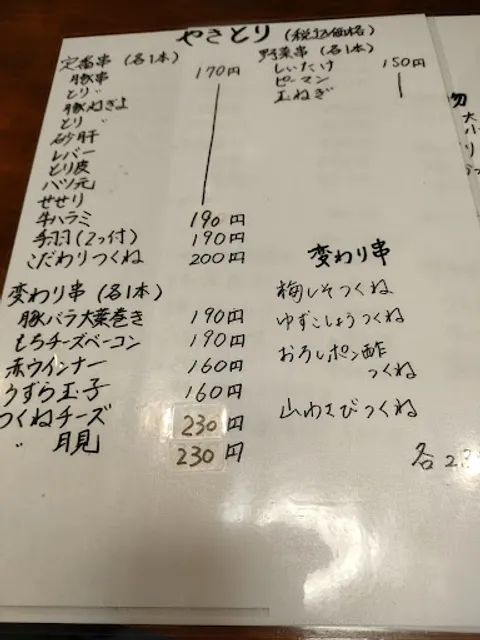 やきとり (税込価格)
定番串 (各1本)
豚串 170円
とり 〃
豚ねぎま
とり 〃
砂肝
レバー
とり皮
ハツ元
せせり
牛ハラミ 190円
手羽(2つ付) 190円
こだわりつくね 200円
変わり串 (各1本)
豚バラ大葉巻き 190円
もちチーズベーコン 190円
赤ウインナー 160円
うずら玉子 160円
つくねチーズ 230円
〃 月見 230円
野菜串 (各1本)
しいたけ 150円
ピーマン
玉ねぎ
変わり串
梅しそつくね
ゆずこしょうつくね
おろしポン酢
つくね
山わさびつくね
各23
物
大
小